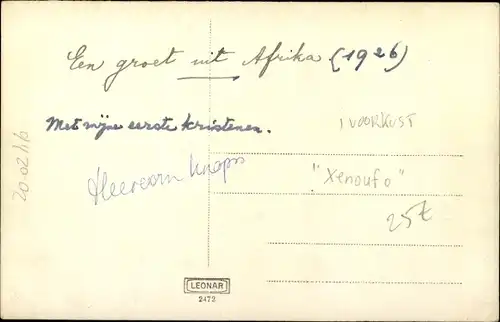 Een groet uit Afrika (1926)
Met mijne eerste kristenen.
IVOORKUST
"Xenoufo"
25€
20-02/16
LEONAR
2472